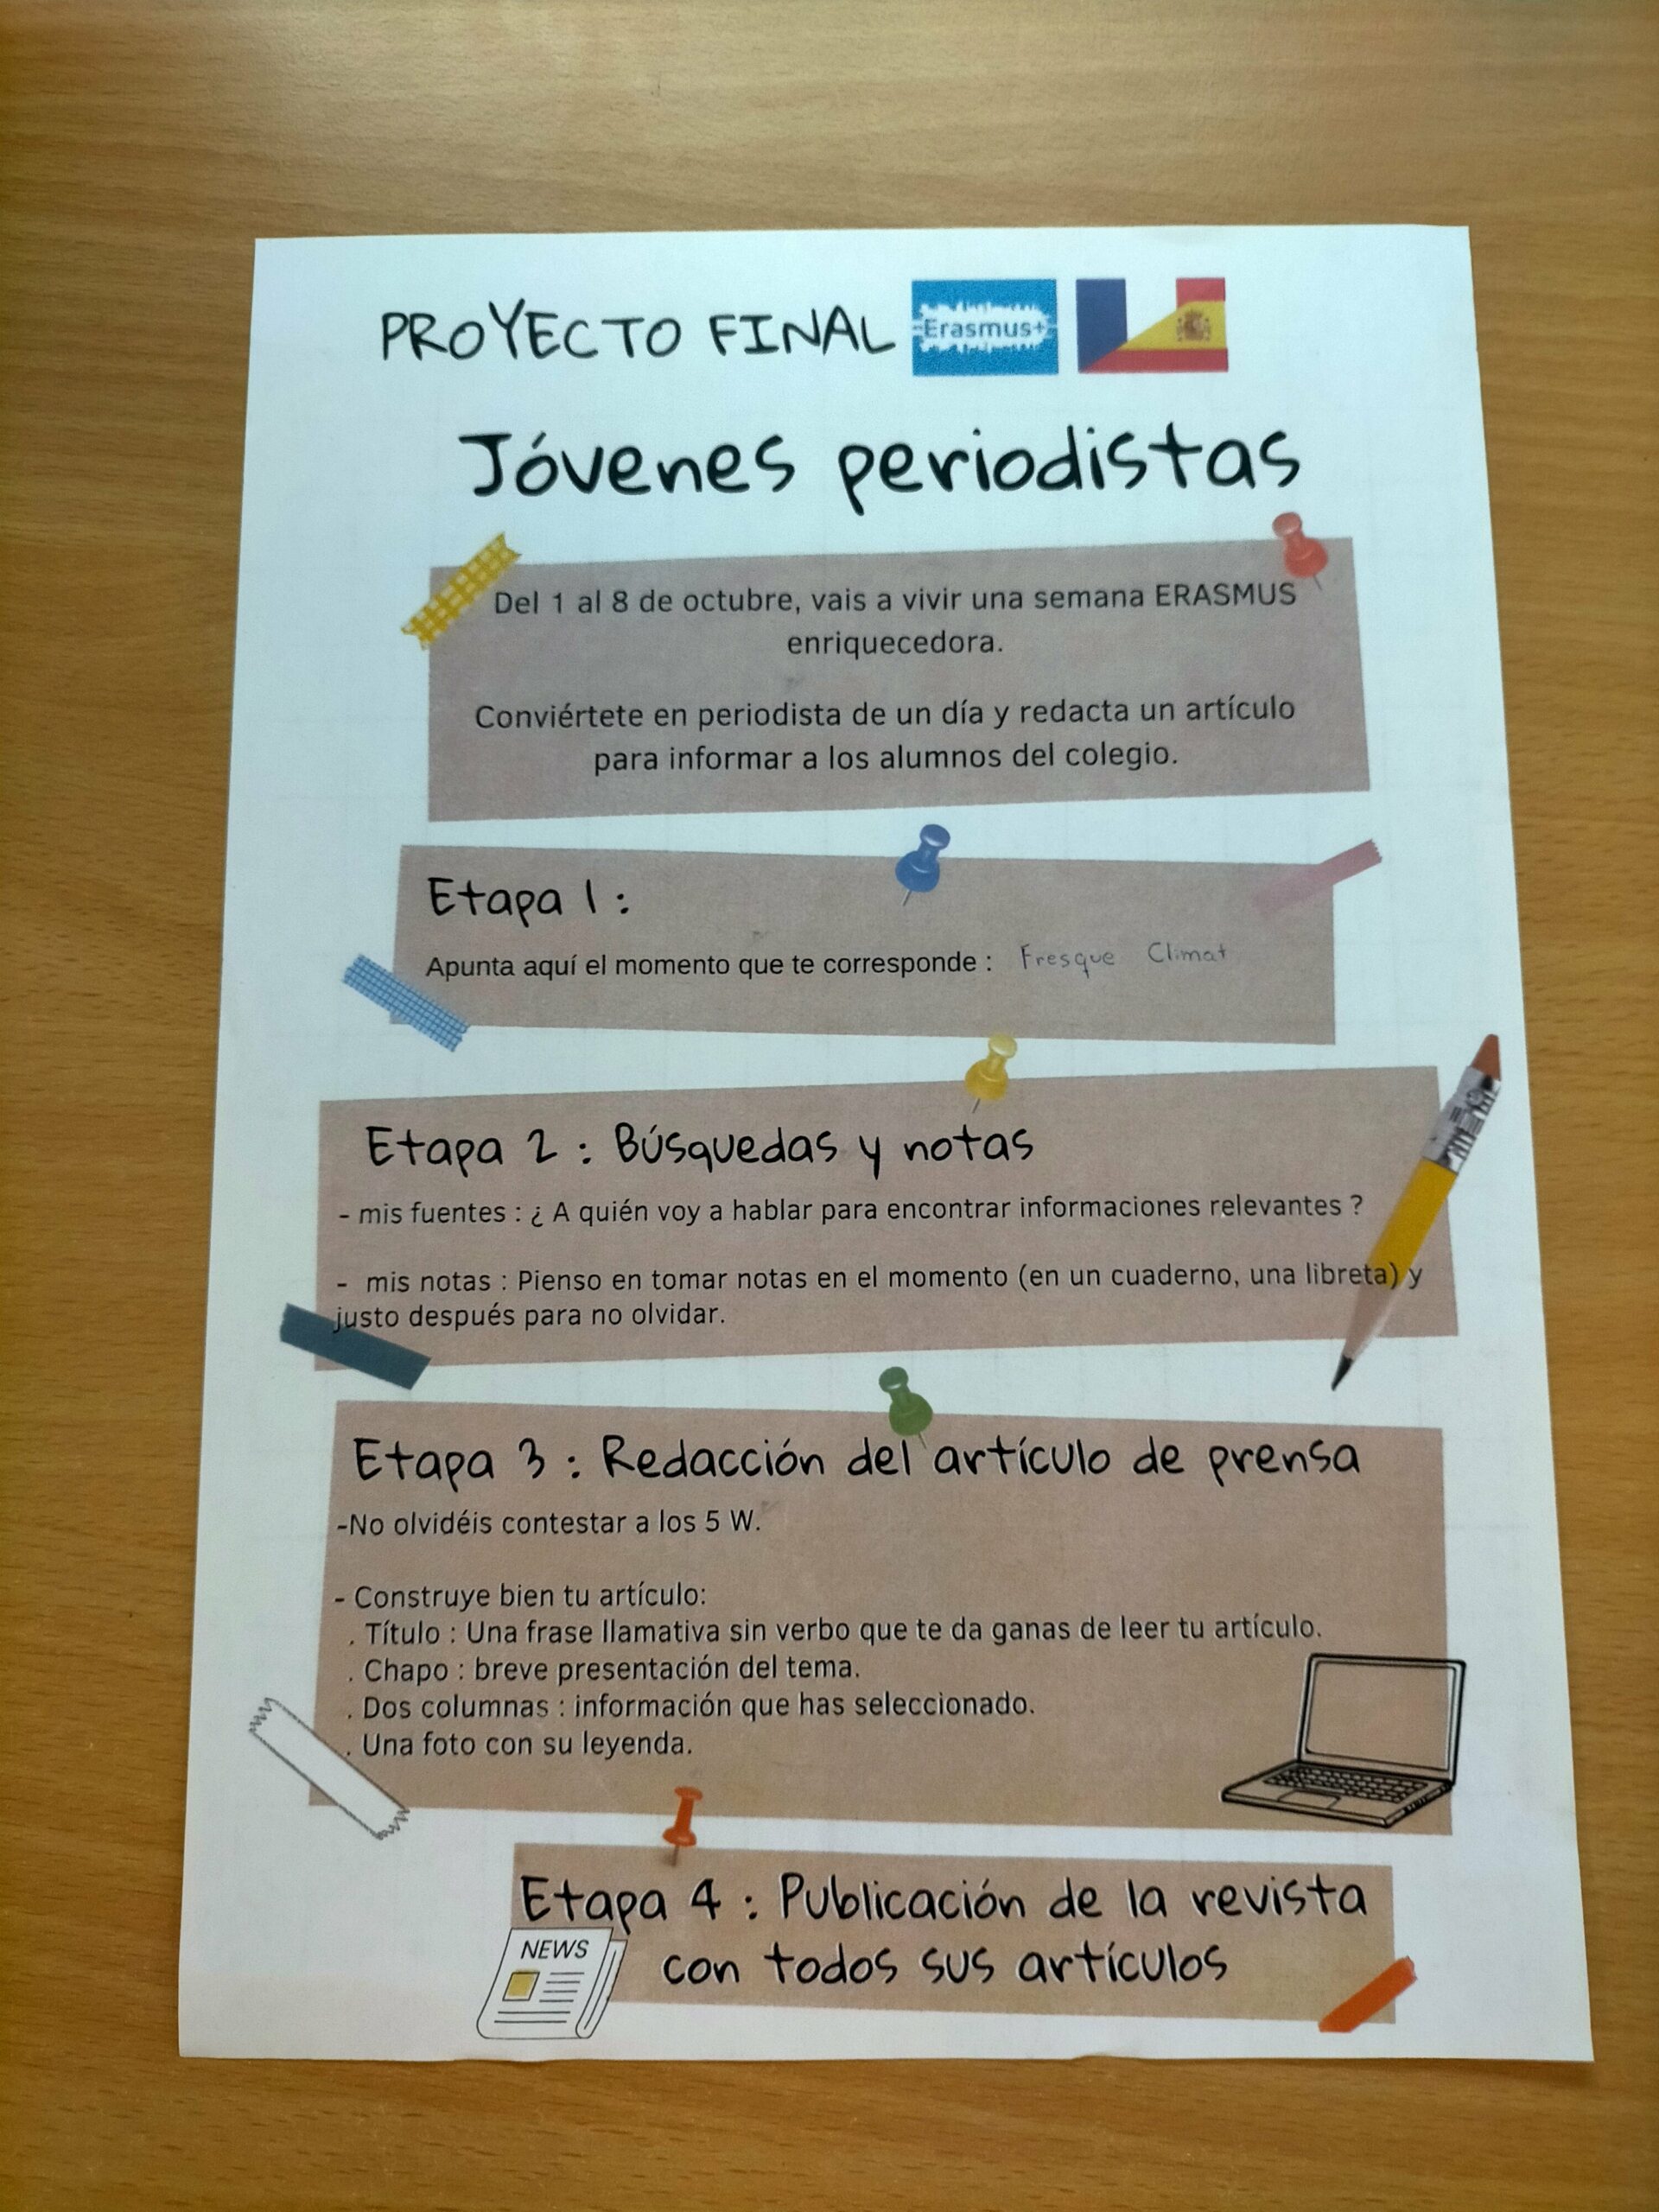 PROYECTO FINAL
Erasmus+
Jóvenes periodistas
Del 1 al 8 de octubre, vais a vivir una semana ERASMUS
enriquecedora.
Conviértete en periodista de un día y redacta un artículo
para informar a los alumnos del colegio.
Etapa 1 :
Apunta aquí el momento que te corresponde : Fresque Climat
Etapa 2 : Búsquedas y notas
- mis fuentes : ¿ A quién voy a hablar para encontrar informaciones relevantes ?
- mis notas : Pienso en tomar notas en el momento (en un cuaderno, una libreta) y
justo después para no olvidar.
Etapa 3 : Redacción del artículo de prensa
-No olvidéis contestar a los 5 W.
- Construye bien tu artículo:
. Título : Una frase llamativa sin verbo que te da ganas de leer tu artículo.
. Chapo : breve presentación del tema.
. Dos columnas : información que has seleccionado.
. Una foto con su leyenda.
Etapa 4 : Publicación de la revista
con todos sus artículos
NEWS